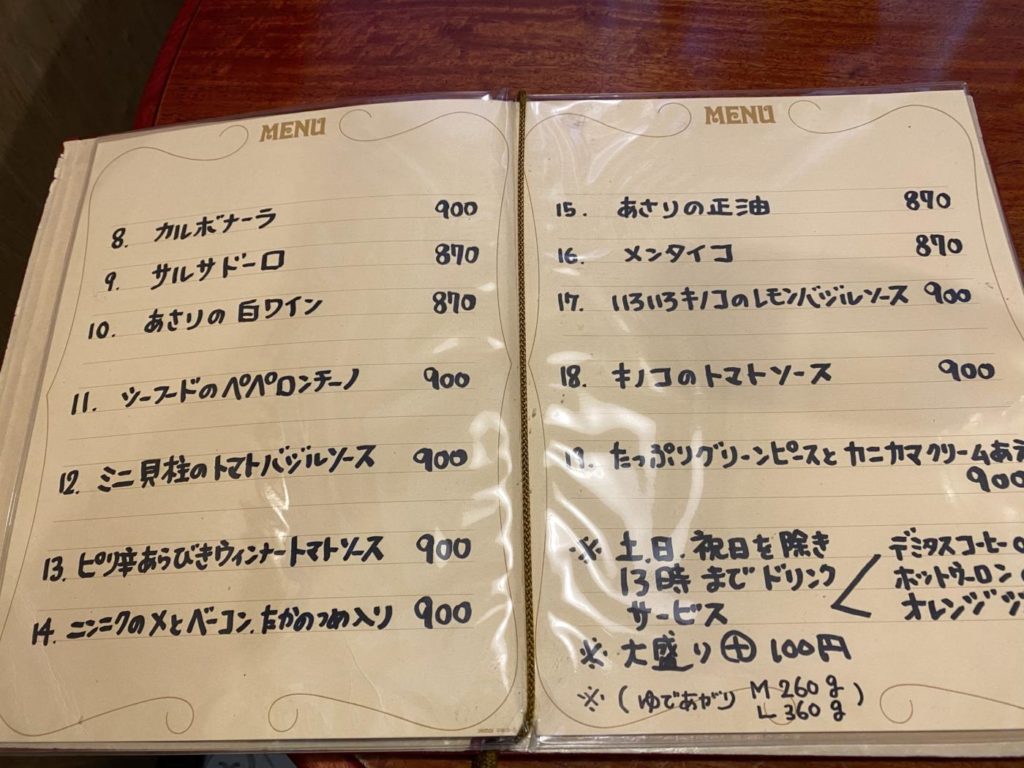 MENU
8. カルボナーラ 900
9. サルサドーロ 870
10. あさりの白ワイン 870
11. シーフードのペペロンチーノ 900
12. ミニ貝柱のトマトバジルソース 900
13. ピリ辛あらびきウィンナートマトソース 900
14. ニンニクのメとベーコン、たかのつめ入り 900
MENU
15. あさりの正油 870
16. メンタイコ 870
17. いろいろキノコのレモンバジルソース 900
18. キノコのトマトソース 900
19. たっぷりグリーンピースとカニカマクリームあえ
900
※ 土、日、祝日を除き
13時までドリンク
サービス
デミタスコーヒー
ホットウーロン
オレンジジ
※ 大盛り ⊕ 100円
※ (ゆであがり M 260g
L 360g)